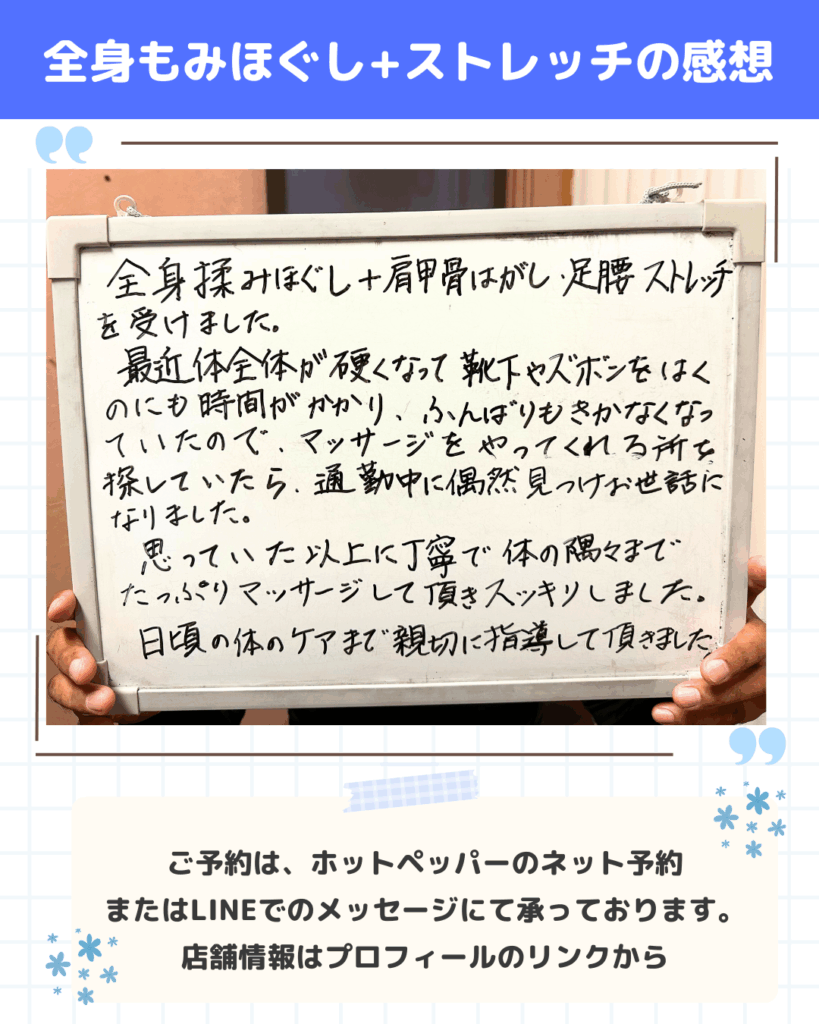 全身もみほぐし+ストレッチの感想
全身揉みほぐし+肩甲骨はがし・足腰ストレッチ
を受けました。
最近体全体が硬くなって靴下やズボンをはく
のにも時間がかかり、ふんばりもきかなくなっ
ていたので、マッサージをやってくれる所を
探していたら、通勤中に偶然見つけお世話に
なりました。
思っていた以上に丁寧で体の隅々まで
たっぷりマッサージして頂きスッキリしました。
日頃の体のケアまで親切に指導して頂きました
ご予約は、ホットペッパーのネット予約
またはLINEでのメッセージにて承っております。
店舗情報はプロフィールのリンクから